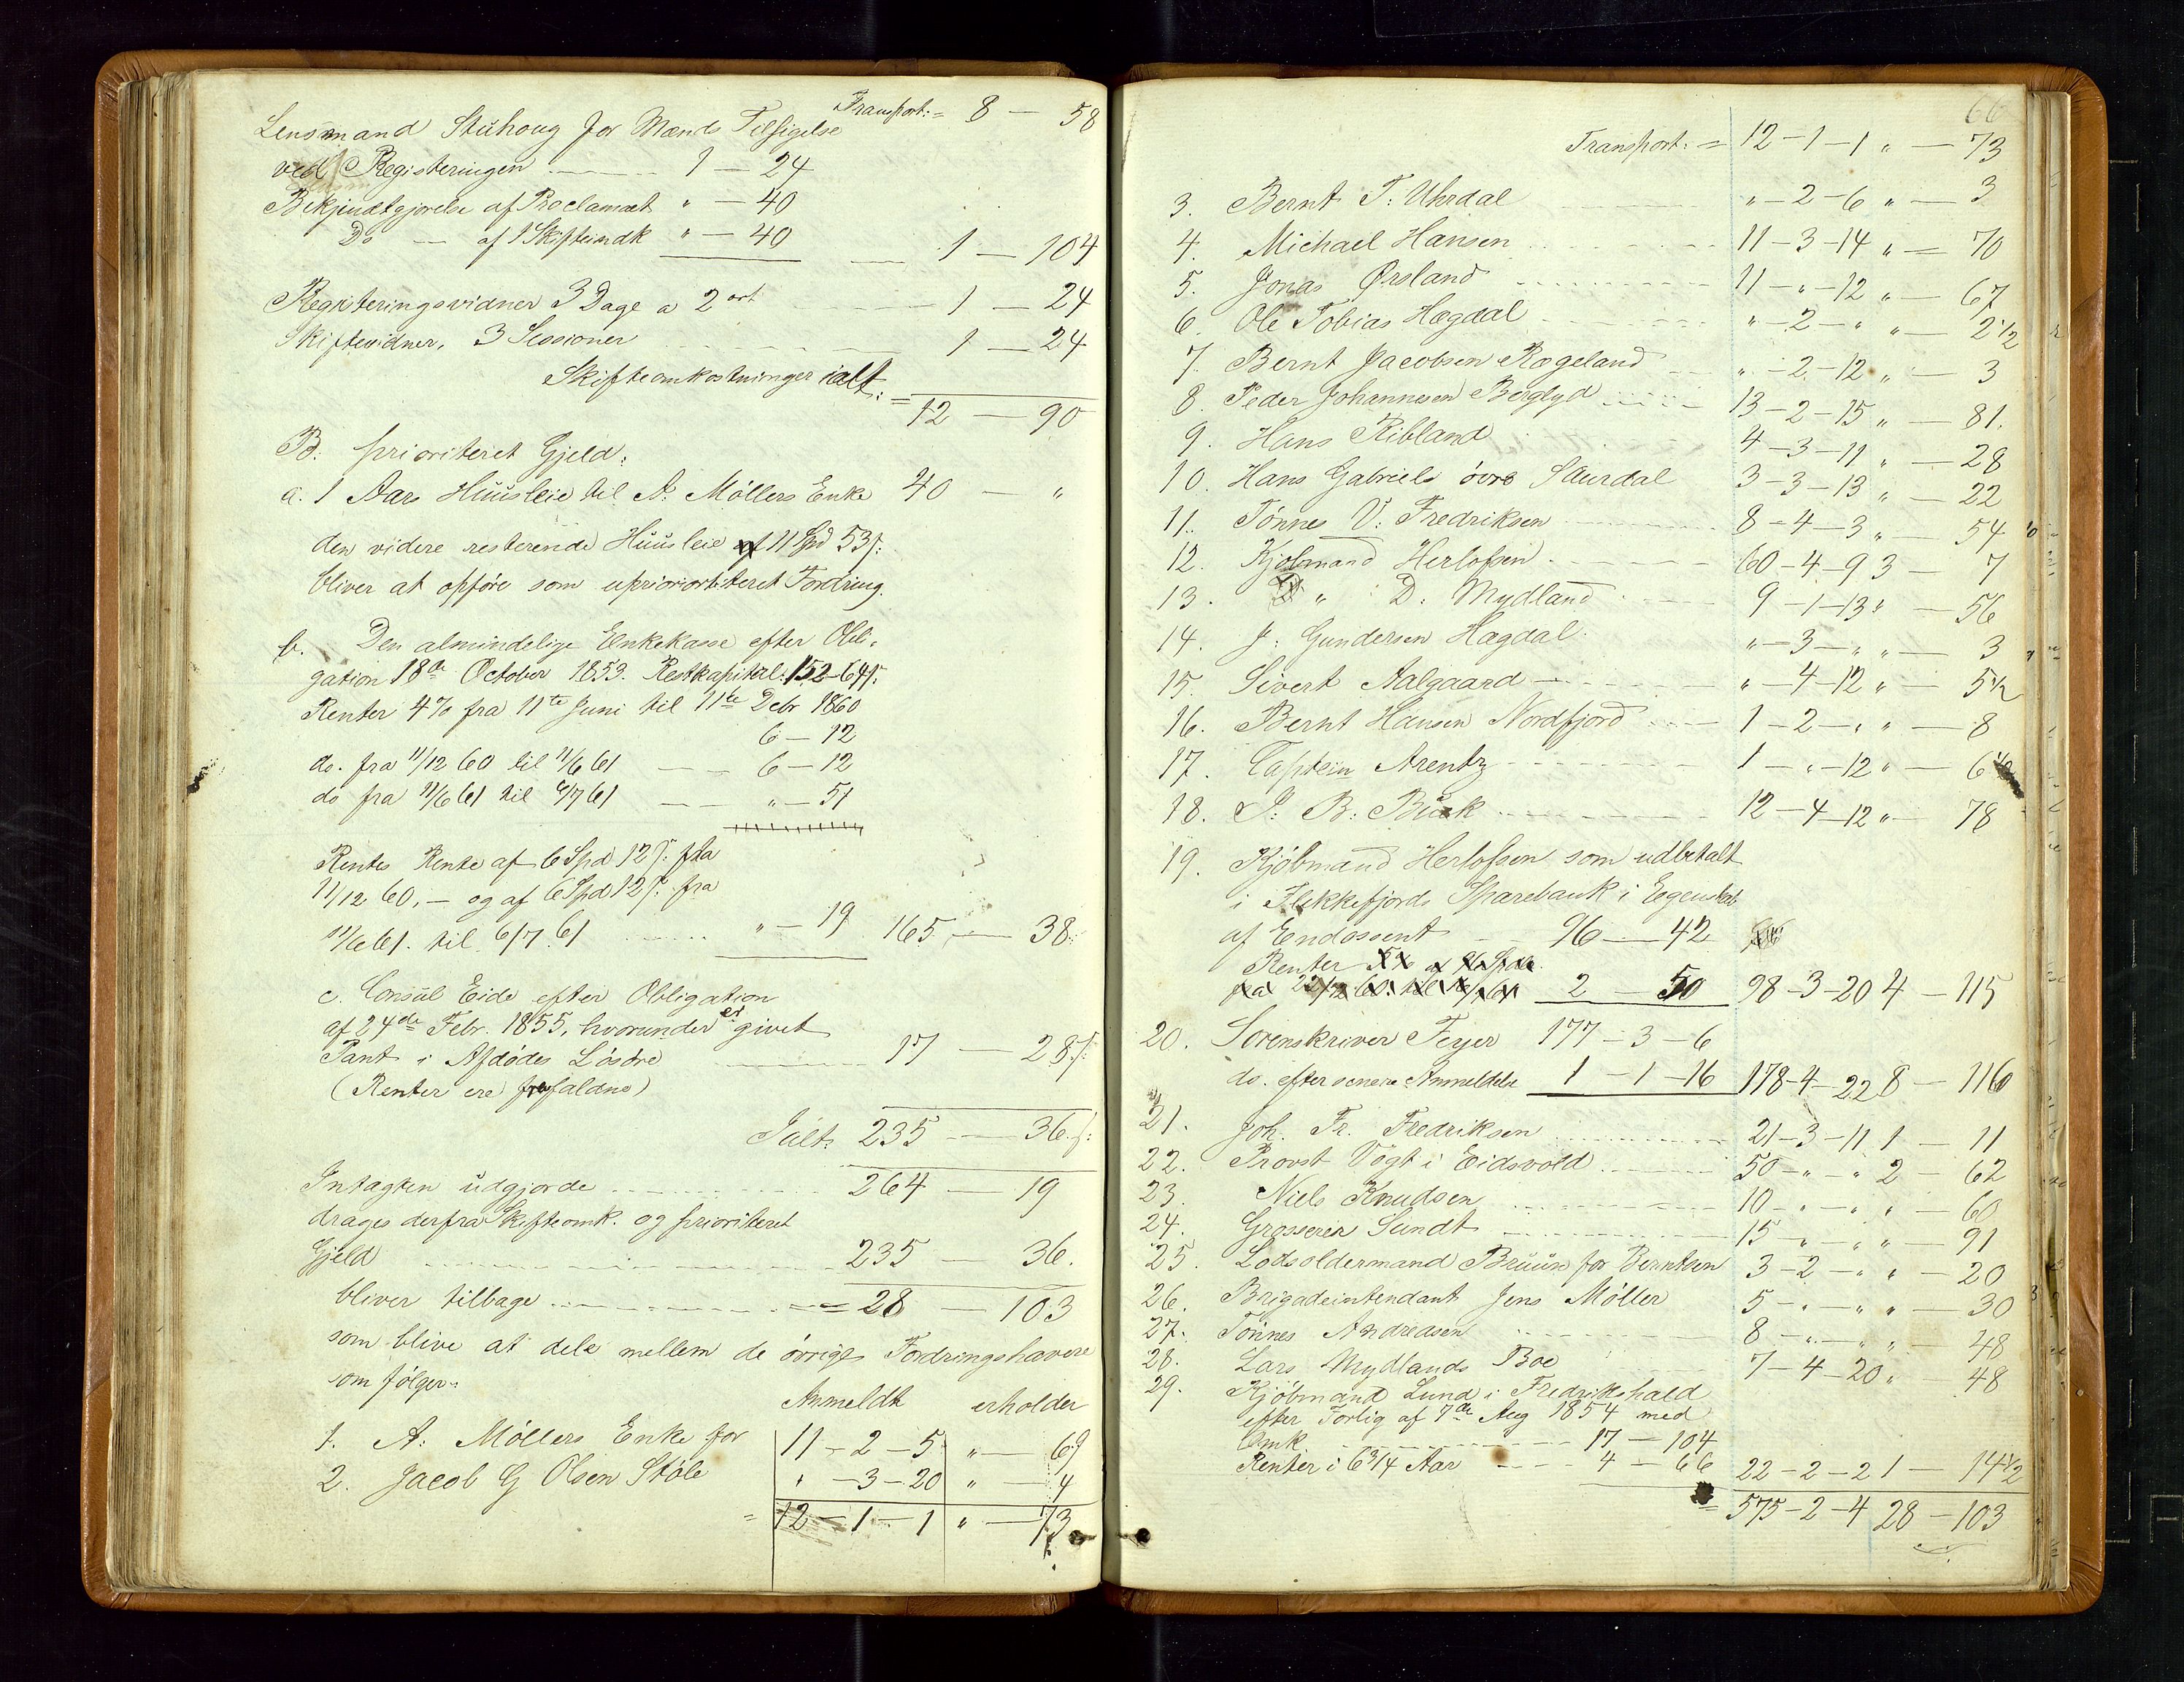 Transport: = 8 — 58
Lensmand Stuhoug for Mænds Tilsigelse
ved Registeringen 1 — 24
Bekjendtgjørelse af Proclamaet " — 40
Do — af 1 Skifteindk " — 40 — 1 — 104
Registeringsvidner 3 Dage a 2 ort — 1 — 24
Skiftevidner, 3 Sessioner 1 — 24
Skifteomkostninger ialt: =
12 — 90
B. prioriteret Gjeld:
a. 1 Aars Huusleie til A: Møllers Enke 40 — "
den videre resterende Huusleie af 11 Spd 53 s:
bliver at opføre som uprioriteret Fordring.
b. Den almindelige Enkekasse efter Obli-
gation 18de October 1853. Restkapital: 152-64 s:
Renter 4% fra 11te Juni til 11te Debr 1860
6 — 12
do. fra 11/12 60 til 11/6 61 — 6 — 12
do fra 11/6 61 til 6/7 61 — " — 51
Rentes Rente af 6 Spd 12 s: fra
11/12 60, — og af 6 Spd 12 s: fra
11/6 61. til 6/7 61 " — 19 165 — 38:
c. Consul Eide efter Obligation
af 24de Febr. 1855, hvorunder er givet
Pant i Afdødes Løsøre 17 — 28 s:
(Renter ere frafaldne)
Ialt: 235 — 36 s:
Intagten udgjorde 264 — 19
drages derfra Skifteomk. og prioriteret
Gjeld 235 — 36.
bliver tilbage = 28 — 103
som blive at dele mellem de øvrige Fordringshavere
som følger:
Anmeldt erholder
1. A: Møllers Enke for 11 — 2 — 5 " — 69
2. Jacob G Olsen Støle " — 3 — 20 " — 4
= 12 — 1 — 1 " — 73
66
Transport: = 12 — 1 — 1 " — 73
3. Bernt T: Uhrdal " — 2 — 6 " — 3
4. Michael Hansen 11 — 3 — 14 " — 70
5. Jonas Ørsland 11 — " — 12 " — 67
6. Ole Tobias Hægdal " — 2 — " " — 2 1/2
7. Bernt Jacobsen Rægeland " — 2 — 12 " — 3
8. Peder Johannesen Berglyd 13 — 2 — 15 " — 81.
9. Hans Ribland 4 — 3 — 11 " — 28
10. Hans Gabriels øvre Saurdal 3 — 3 — 13 " — 22
11. Tønnes V: Fredriksen 8 — 4 — 3 " — 54
12. Kjøbmand Herlofsen 60 — 4 — 9 3 — 7
13. " D: Mydland 9 — 1 — 13 " — 56
14. J: Gundersen Hægdal " — 3 — " " — 3
15. Sivert Aalgaard " — 4 — 12 " — 5 1/2
16. Bernt Hansen Nordfjord 1 — 2 — " " — 8
17. Captein Arentz 1 — " — 12 " — 6 1/2
18. J: B: Buck 12 — 4 — 12 " — 78
19. Kjøbmand Herlofsen som udbetalt
i Flekkefjords Sparebank i Egenskab
af Endossent 96 — 42
Renter 5% af 96 Spd
fra 22/12 60. til 2 — 50 98 — 3 — 20 4 — 115
20. Sorenskriver Feyer 177 — 3 — 6
do. efter senere Anmeldelse 1 — 1 — 16 178 — 4 — 22 8 — 116
21. Joh. Fr. Fredriksen 21 — 3 — 11 1 — 11
22. Provst Vogt i Eidsvold 50 — " — " 2 — 62
23. Niels Knudsen 10 — " — " " — 60
24. Grosserer Sundt 15 — " — " " — 91
25. Lodsoldermand Bruun for Berntsen 3 — 2 — " " — 20
26. Brigadeintendant Jens Møller 5 — " — " " — 30
27. Tønnes Andreasen 8 — " — " " — 48
28. Lars Mydlands Boe 7 — 4 — 20 " — 48
29. Kjøbmand Lund i Fredrikshald
efter Forlig af 7de Aug 1854 med
Omk 17 — 104
Renter i 6 3/4 Aar 4 — 66 22 — 2 — 2 1 — 14 1/2
= 575 — 2 — 4 28 — 103